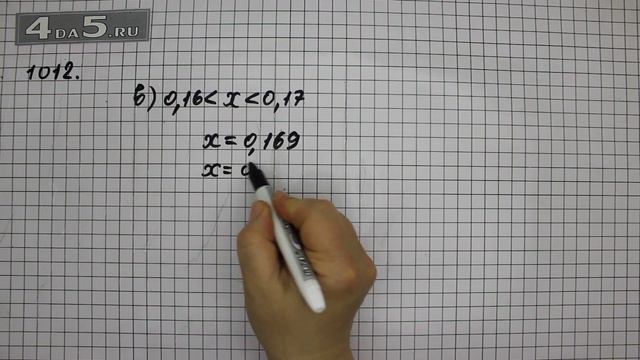 4ДА5.RU
1012.
в) 0,16 < x < 0,17
x = 0,169
x = 0